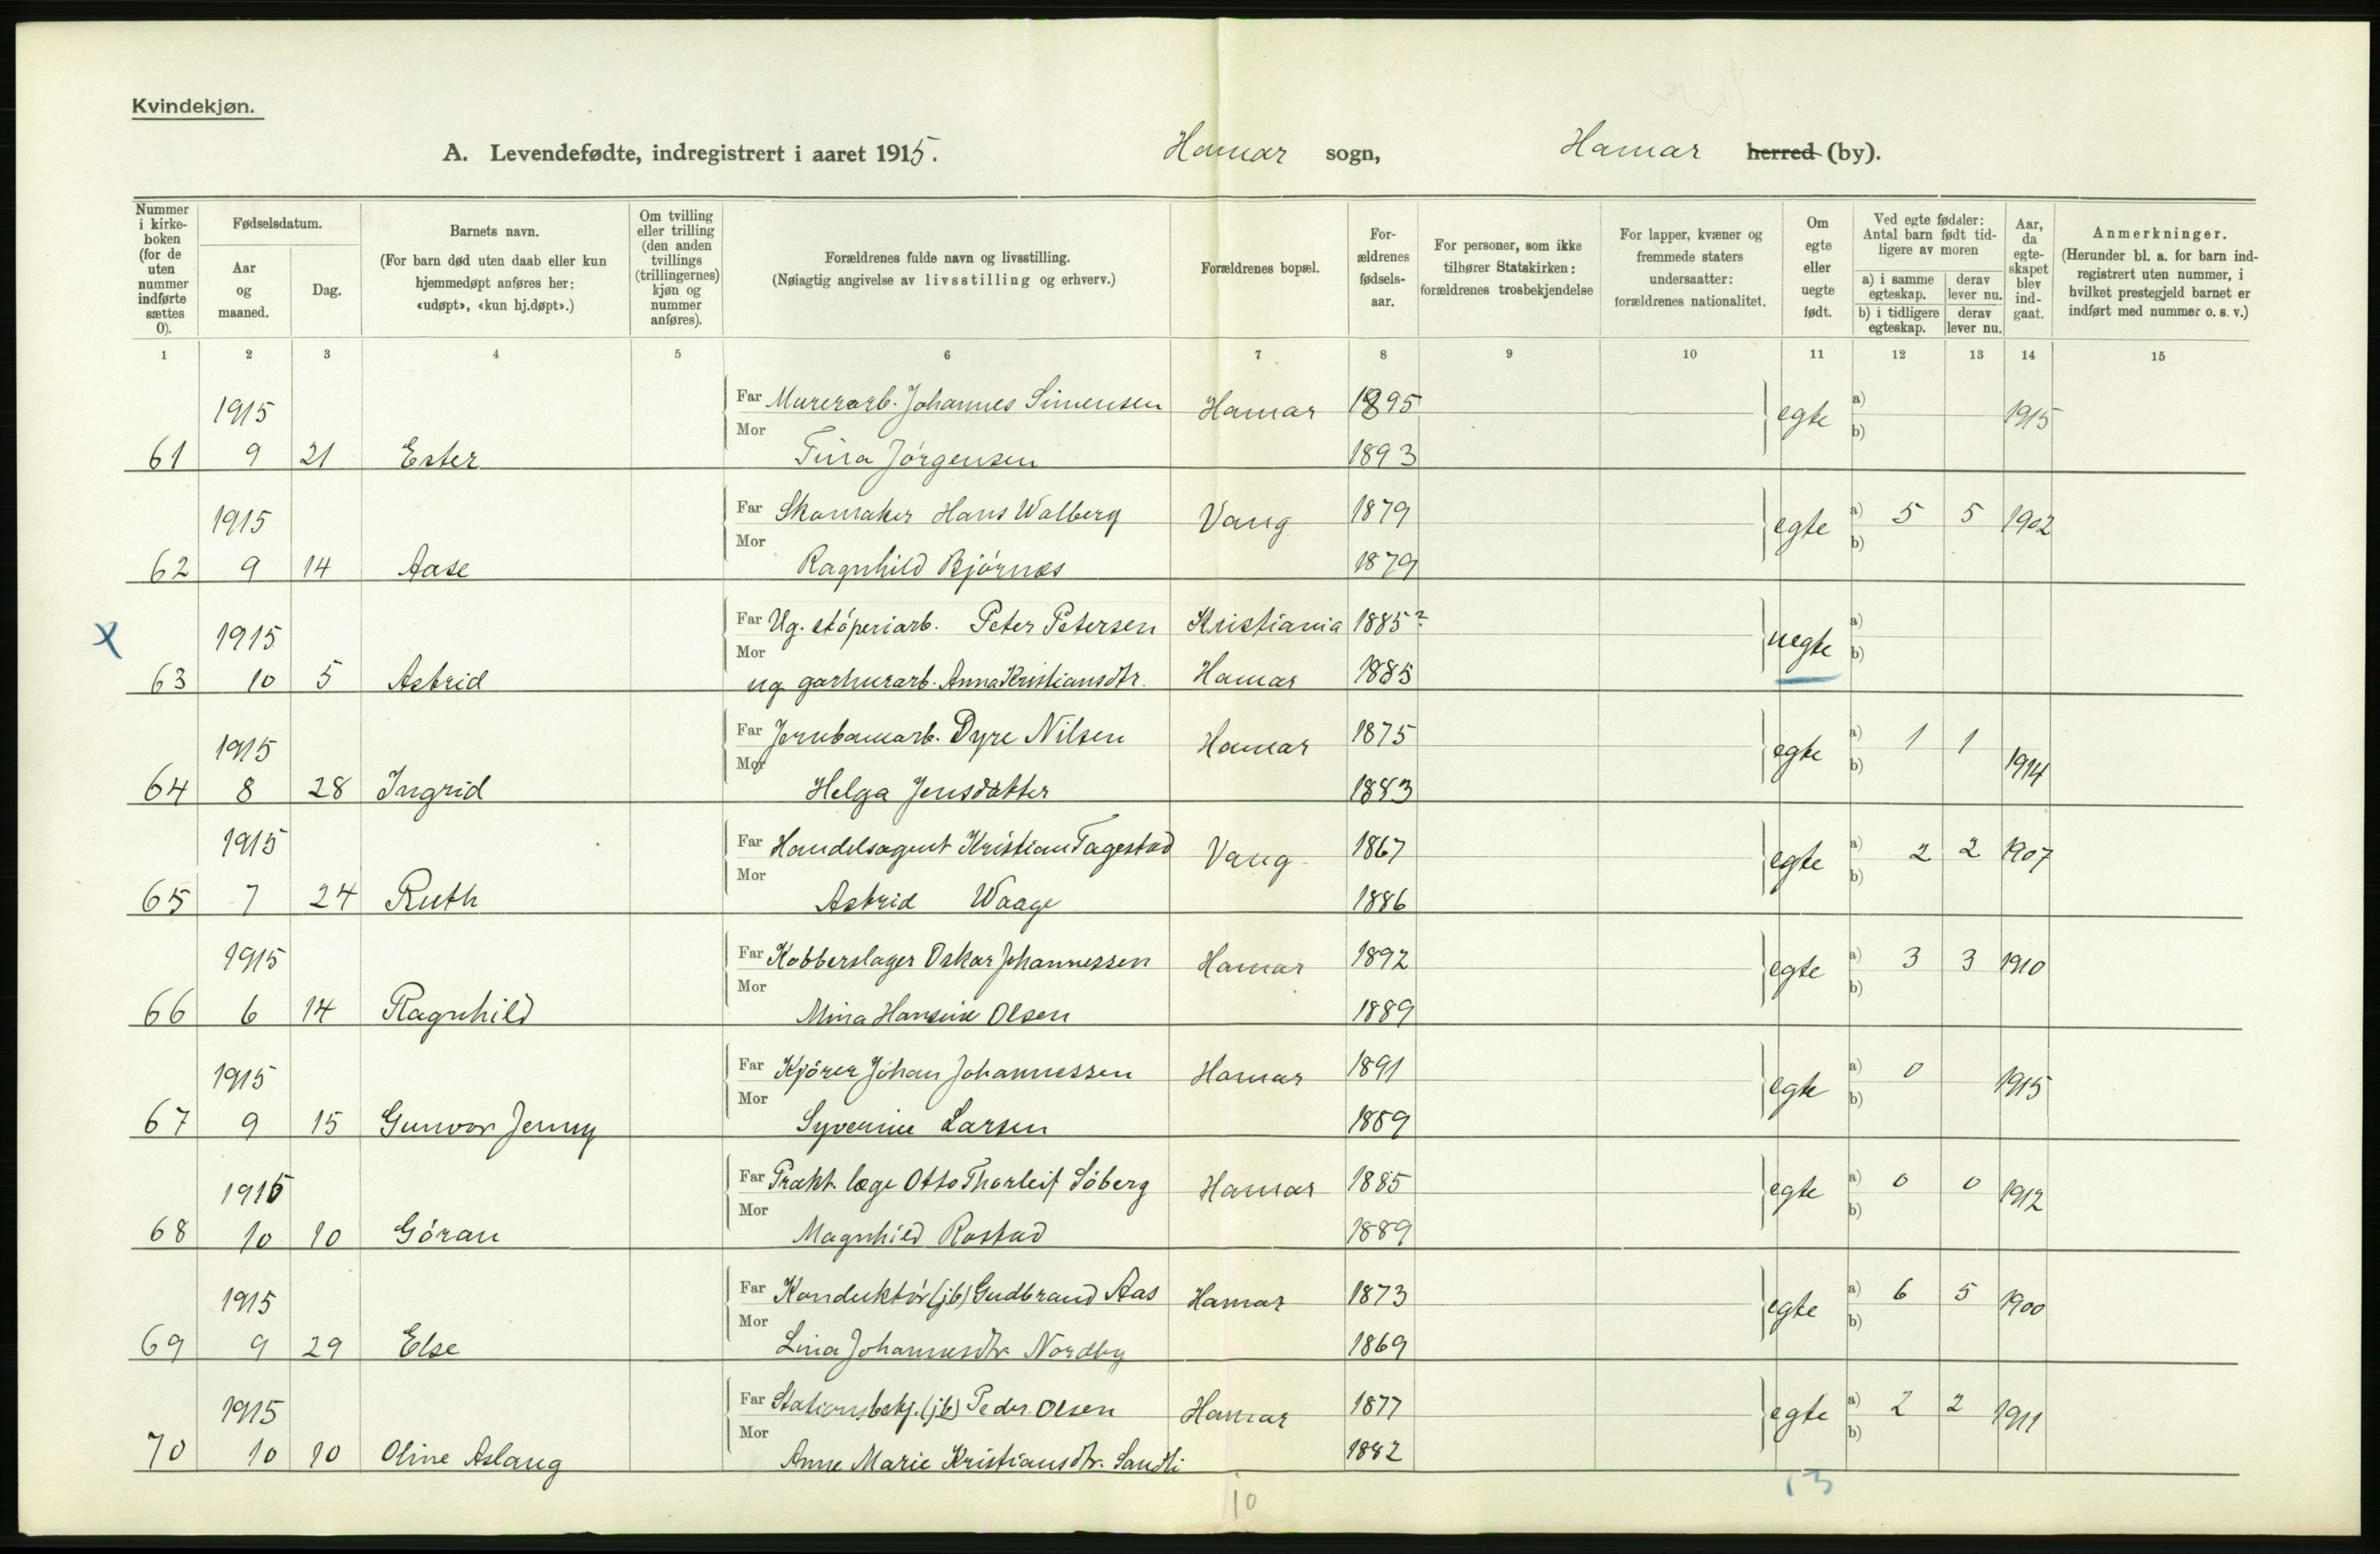 Kvindekjøn.
A. Levendefødte, indregistrert i aaret 1915. Hamar sogn, Hamar herred (by).
Nummer i kirkeboken (for de uten nummer indførte sættes 0).
Fødselsdatum.
Aar og maaned.
Dag.
Barnets navn.
(For barn død uten daab eller kun hjemmedøpt anføres her: «udøpt», «kun hj.døpt».)
Om tvilling eller trilling (den anden tvillings (trillingernes) kjøn og nummer anføres).
Forældrenes fulde navn og livsstilling.
(Nøiagtig angivelse av livsstilling og erhverv.)
Forældrenes bopæl.
Forældrenes fødselsaar.
For personer, som ikke tilhører Statskirken: forældrenes trosbekjendelse
For lapper, kvæner og fremmede staters undersaatter: forældrenes nationalitet.
Om egte eller uegte født.
Ved egte fødsler: Antal barn født tidligere av moren
a) i samme egteskap. derav lever nu.
b) i tidligere egteskap. derav lever nu.
Aar, da egteskapet blev indgaat.
Anmerkninger.
(Herunder bl. a. for barn indregistrert uten nummer, i hvilket prestegjeld barnet er indført med nummer o. s. v.)
1 2 3 4 5 6 7 8 9 10 11 12 13 14 15
1915 Far Murerarb. Johannes Simensen Hamar 1895 egte a) b) 1915
61 9 21 Ester Mor Tina Jørgensen 1893
1915 Far Skomaker Hans Walberg Vang 1879 egte a) 5 5 b) 1902
62 9 14 Aase Mor Ragnhild Bjørnes 1879
x 1915 Far Ug. støperiarb. Peter Petersen Kristiania 1885? uegte a) b)
63 10 5 Astrid Mor ug. Anna Kristiansdtr. Hamar 1885
1915 Far Jernbanearb. Dyre Nilsen Hamar 1875 egte a) 1 1 b) 1914
64 8 28 Ingrid Mor Helga Jensdatter 1883
1915 Far Handelsagent Kristian Fagestad Vang 1867 egte a) 2 2 b) 1907
65 7 24 Ruth Mor Astrid Waage 1886
1915 Far Kobberslager Oskar Johannessen Hamar 1892 egte a) 3 3 b) 1910
66 6 14 Ragnhild Mor Mina Hansine Olsen 1889
1915 Far Kjører Johan Johannessen Hamar 1891 egte a) 0 b) 1915
67 9 15 Gunvor Jenny Mor Syverine Larsen 1889
1915 Far Prakt. læge Otto Thorleif Søberg Hamar 1885 egte a) 0 0 b) 1912
68 10 10 Gøran Mor Magnhild Rostad 1889
1915 Far Konduktør (jb) Gudbrand Aas Hamar 1873 egte a) 6 5 b) 1900
69 9 29 Else Mor Lina Johannesdtr. Nordby 1869
1915 Far Stationsbetj. (jb) Peder Olsen Hamar 1877 egte a) 2 2 b) 1911
70 10 10 Oline Aslaug Mor Anne Marie Kristiansdtr. Sandli 1882
10